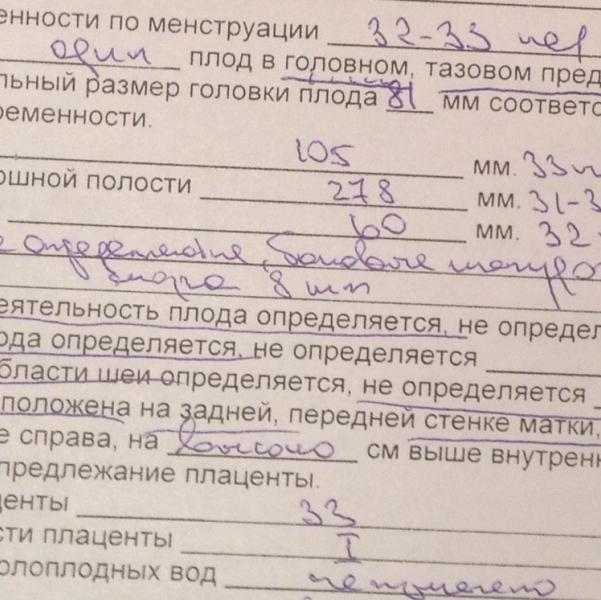 енности по менструации 32-33 нед
один плод в головном, тазовом пред
льный размер головки плода 81 мм соответс
ременности.
105 мм. 33 н
ошной полости 278 мм. 31-3
60 мм. 32
еятельность плода определяется, не определ
ода определяется, не определяется
бласти шеи определяется, не определяется
положена на задней, передней стенке матки,
е справа, на высоко см выше внутренн
предлежание плаценты.
центы 33
сти плаценты I
олоплодных вод